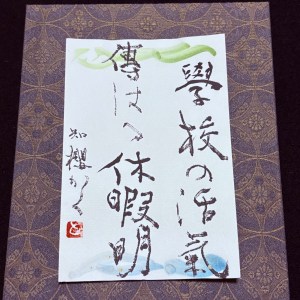 學校の活氣
傳はる休暇明
知櫻